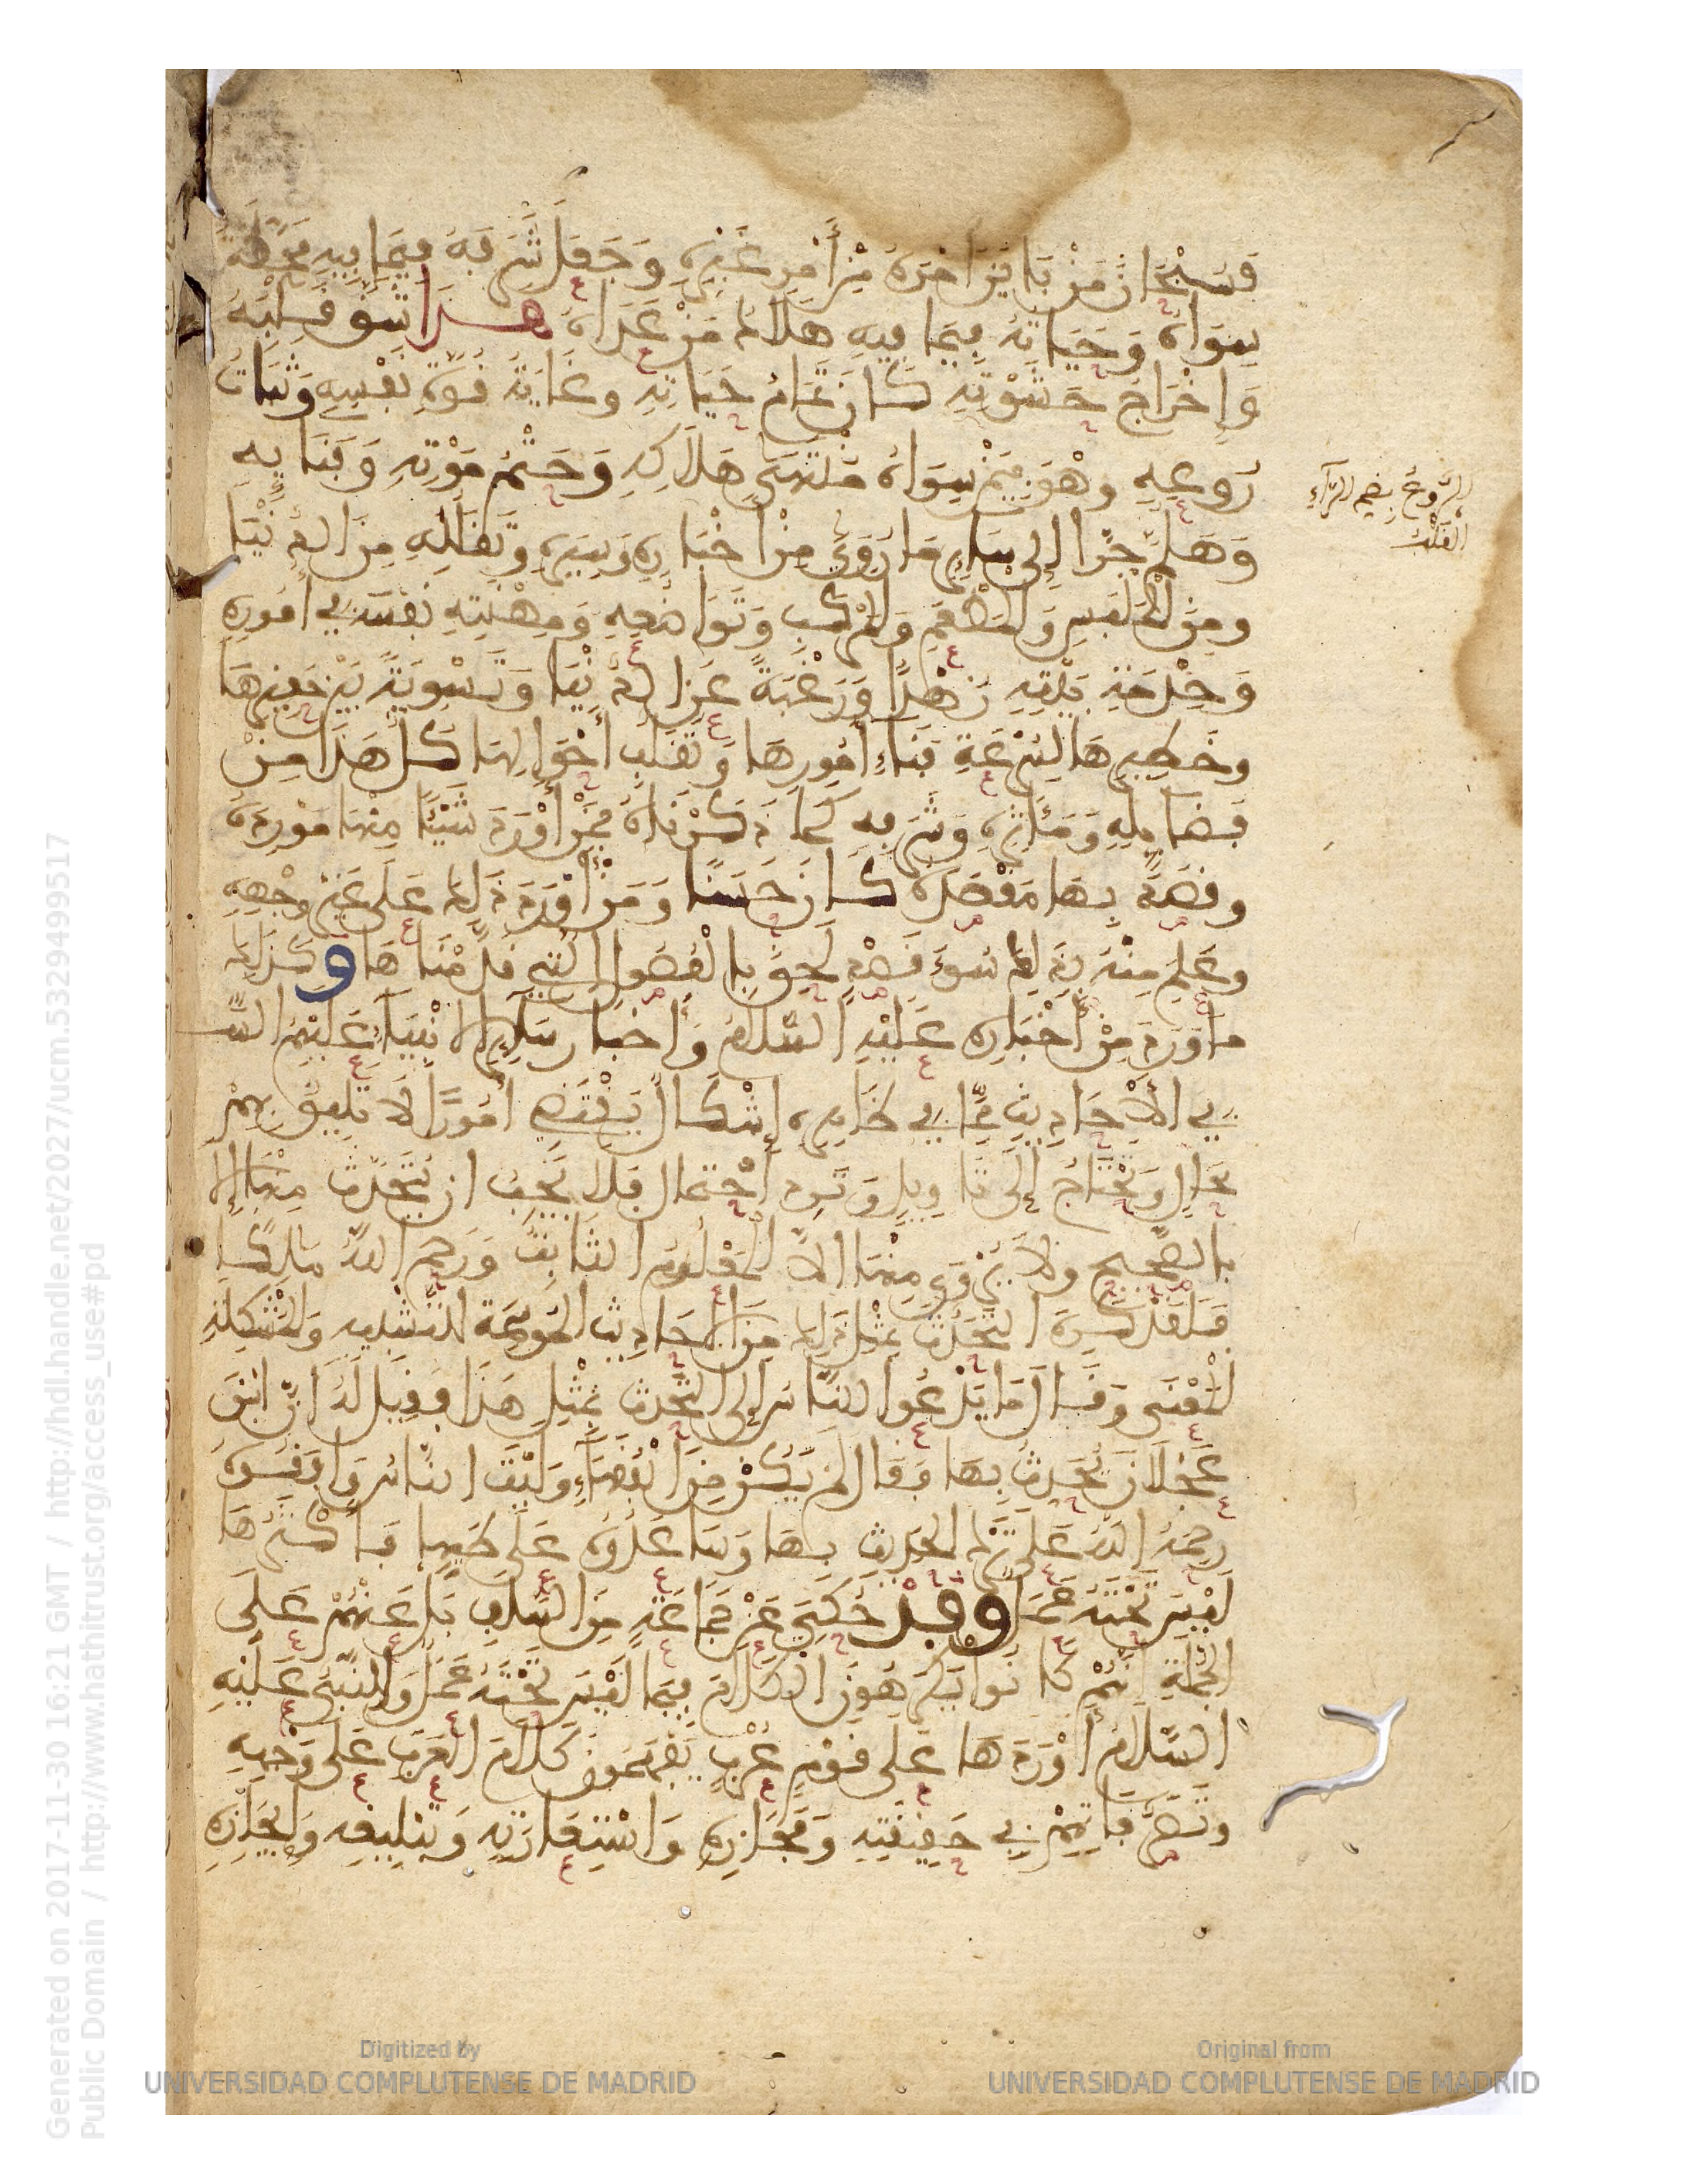 فَسُبْحَانَ مَنْ بَايَنَ أَمْرَهُ مِنْ أَمْرِ غَيْرِهِ وَجَعَلَ شَرَفَهُ فِيمَا فِيهِ مَحَطَّةُ
سِوَاهُ وَحَيَاتَهُ فِيمَا فِيهِ هَلَاكُ مَنْ عَدَاهُ هَذَا شَقُّ قَلْبِهِ
وَإِخْرَاجُ حَشْوَتِهِ كَانَ تَمَامَ حَيَاتِهِ وَغَايَةَ قُوَّةِ نَفْسِهِ وَثَبَاتَ
رُوعِهِ وَهْوَ فِيمَنْ سِوَاهُ مُنْتَهَى هَلَاكِهِ وَحَتْمُ مَوْتِهِ وَفَنَائِهِ
وَهَلُمَّ جَرًّا إِلَى سَائِرِ مَا رُوِيَ مِنْ أَخْبَارِهِ وَسِيَرِهِ وَتَقَلُّلِهِ مِنَ الدُّنْيَا
وَمِنَ الْمَلْبَسِ وَالْمَطْعَمِ وَالْمَرْكَبِ وَتَوَاضُعِهِ وَمِهْنَتِهِ نَفْسَهُ فِي أُمُورِهِ
وَخِدْمَةِ بَيْتِهِ زُهْدًا وَرَغْبَةً عَنِ الدُّنْيَا وَتَسْوِيَةً بَيْنَ حَقِيرِهَا
وَخَطِيرِهَا لِسُرْعَةِ فَنَاءِ أُمُورِهَا وَتَقَلُّبِ أَحْوَالِهَا كُلُّ هَذَا مِنْ
فَضَائِلِهِ وَمَآثِرِهِ وَشَرَفِهِ كَمَا ذَكَرْنَاهُ فَمَنْ أَوْرَدَ شَيْئًا مِنْهَا مَوْرِدَهُ
وَقَصَدَ بِهَا مَقْصَدَهُ كَانَ حَسَنًا وَمَنْ أَوْرَدَ ذَلِكَ عَلَى غَيْرِ وَجْهِهِ
وَعُلِمَ مِنْهُ بِذَلِكَ سُوءُ قَصْدِهِ لَحِقَ بِالْفُصُولِ الَّتِي قَدَّمْنَاهَا وَكَذَلِكَ
مَا وَرَدَ مِنْ أَخْبَارِهِ عَلَيْهِ السَّلَامُ وَأَخْبَارِ سَائِرِ الْأَنْبِيَاءِ عَلَيْهِمُ السَّ
فِي الْأَحَادِيثِ مِمَّا فِي ظَاهِرِهِ إِشْكَالٌ يَقْتَضِي أُمُورًا لَا تَلِيقُ بِهِمْ
بِحَالٍ وَيَحْتَاجُ إِلَى تَأْوِيلٍ وَتَرَدُّدِ احْتِمَالٍ فَلَا يَجِبُ أَنْ يُتَحَدَّثَ مِنْهَا إِلَّا
بِالصَّحِيحِ وَلَا يُرْوَى مِنْهَا إِلَّا الْمَعْلُومُ الثَّابِتُ وَرَحِمَ اللَّهُ مَالِكًا
فَلَقَدْ كَرِهَ التَّحَدُّثَ بِمِثْلِ ذَلِكَ مِنَ الْأَحَادِيثِ الْمُوهِمَةِ لِلتَّشْبِيهِ وَالْمُشْكِلَةِ
الْمَعْنَى وَقَالَ مَا يَدْعُو النَّاسَ إِلَى التَّحَدُّثِ بِمِثْلِ هَذَا فَقِيلَ لَهُ إِنَّ ابْنَ
عَجْلَانَ يُحَدِّثُ بِهَا فَقَالَ لَمْ يَكُنْ مِنَ الْفُقَهَاءِ وَلَيْتَ النَّاسَ وَافَقُوهُ
رَحِمَهُ اللَّهُ عَلَى تَرْكِ الْحَدِيثِ بِهَا وَسَاعَدُوهُ عَلَى طَيِّهَا فَأَكْثَرُهَا
لَيْسَ تَحْتَهُ عَمَلٌ وَقَدْ حُكِيَ عَنْ جَمَاعَةٍ مِنَ السَّلَفِ بَلْ عَنْهُمْ عَلَى
الْجُمْلَةِ أَنَّهُمْ كَانُوا يَكْرَهُونَ الْكَلَامَ فِيمَا لَيْسَ تَحْتَهُ عَمَلٌ وَالنَّبِيُّ عَلَيْهِ
السَّلَامُ أَوْرَدَهَا عَلَى قَوْمٍ عُرْبٍ يَفْهَمُونَ كَلَامَ الْعَرَبِ عَلَى وَجْهِهِ
وَتَصَرُّفَاتِهِمْ فِي حَقِيقَتِهِ وَمَجَازِهِ وَاسْتِعَارَتِهِ وَبَلِيغِهِ وَإِيجَازِهِ
الرُّوعُ بِضَمِّ الرَّاءِ
الْقَلْبُ
Generated on 2017-11-30 16:21 GMT / http://hdl.handle.net/2027/ucm.5329499517
Public Domain / http://www.hathitrust.org/access_use#pd
Digitized by
UNIVERSIDAD COMPLUTENSE DE MADRID
Original from
UNIVERSIDAD COMPLUTENSE DE MADRID